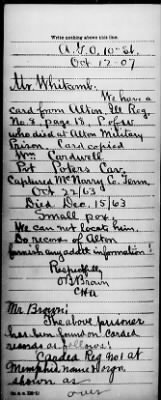 Write nothing above this line.
A.G.O. 10th St.
Oct 17-07
Mr. Whitcomb.
We have a
card from Alton Ill Reg.
No. 8 page 13, P. of W.
who died at Alton Military
Prison. Card copied
Wm Cardwell
Pvt Poters Cav.
Captured McNarry Co. Tenn.
Oct 22/63
Died Dec. 15/63
Small pox.
We can not locate him.
Do records of Alton
furnish any adtl information?
Respectfully
Brown
Mr Brown:
The above prisoner
has been found on carded
records as follows:
Carded Reg No1 at
Memphis, name
shown as
over